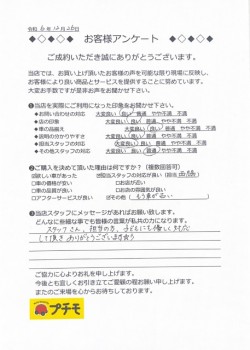 令和 6年12月26日
◆◇◆◇◆ お客様アンケート ◆◇◆◇◆
ご成約いただき誠にありがとうございます。
当店では、お買い上げ頂いたお客様の声を可能な限り現場に反映し、
お客様により良い商品とサービスを提供することに努めています。
大変お手数ですが是非お声をお聞かせ下さい。
❶当店を実際にご利用になった印象をお聞かせ下さい。
◆お問い合わせの対応 大変良い 良い 普通 やや不満 不満
◆店の印象 大変良い 良い 普通 やや不満 不満
◆車の品揃え 大変良い 良い 普通 やや不満 不満
◆説明の分かりやすさ 大変良い 良い 普通 やや不満 不満
◆担当スタッフの対応 大変良い 良い 普通 やや不満 不満
◆その他スタッフの対応 大変良い 良い 普通 やや不満 不満
❷ご購入を決めて頂いた理由は何ですか？（複数回答可）
☐欲しい車があった ☐当社スタッフの対応が良い（担当
☐車の価格が良い ☐お店が近い
☐車の品質が良い ☐お店の雰囲気が良い
☐アフターサービスが良い ☐その他（
❸当店スタッフにメッセージがあればお願い致します。
どんなに些細な事でも皆様の言葉が私共の力になります。
スタッフさん、担当の方、子どもにも優しく対応
して頂き ありがとうございます
ご協力に心よりお礼を申し上げます。
今後とも宜しくお引き立てご愛顧の程お願い申し上げます
またのご来場を心からお待ちしております。
プチモ